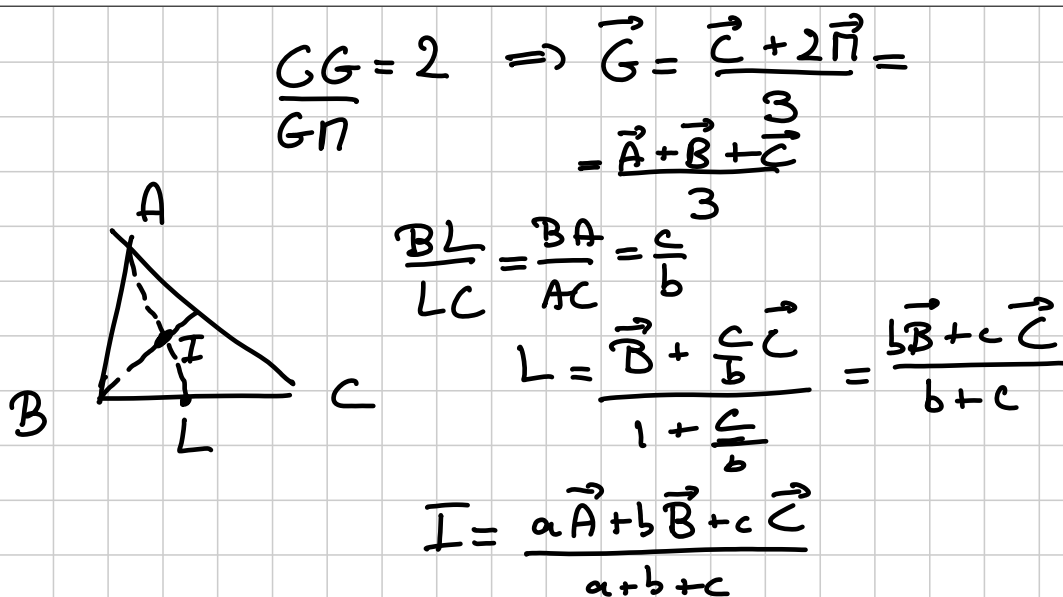 CG/GM = 2 ⟹ G⃗ = (C⃗ + 2M⃗)/3 =
= (A⃗ + B⃗ + C⃗)/3
A
BL/LC = BA/AC = c/b
I
L = (B⃗ + (c/b) C⃗)/(1 + c/b) = (bB⃗ + c C⃗)/(b + c)
B
C
L
I = (aA⃗ + bB⃗ + c C⃗)/(a + b + c)